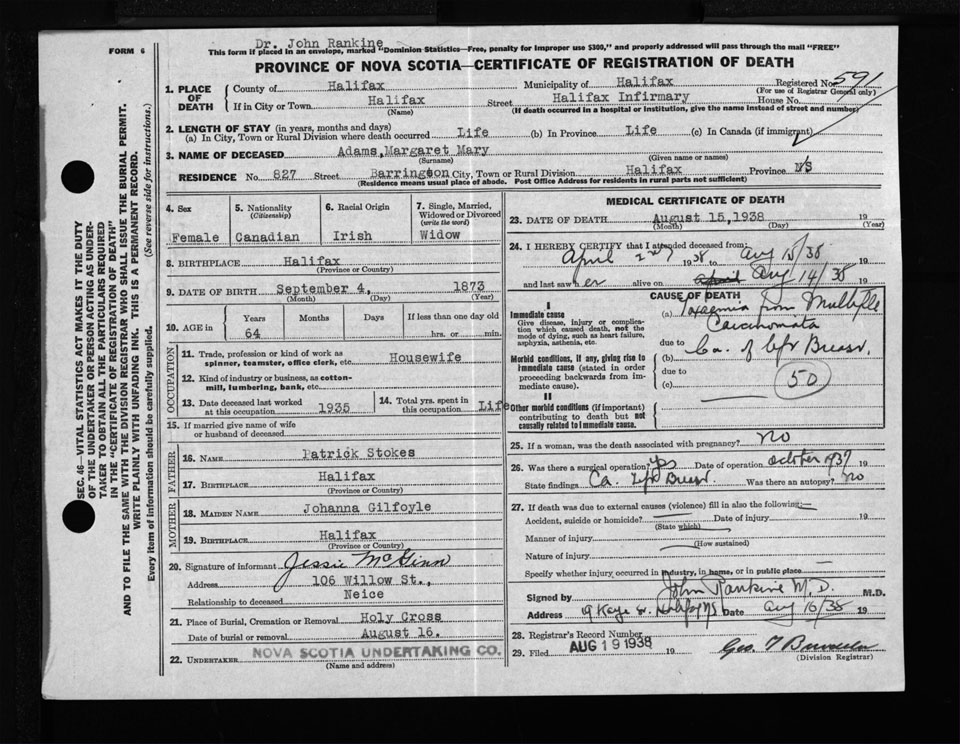 Dr. John Rankine
FORM 6
This form if placed in an envelope, marked "Dominion Statistics—Free, penalty for improper use $300," and properly addressed will pass through the mail "FREE"
PROVINCE OF NOVA SCOTIA—CERTIFICATE OF REGISTRATION OF DEATH
SEC. 46—VITAL STATISTICS ACT MAKES IT THE DUTY
OF THE UNDERTAKER OR PERSON ACTING AS UNDER-
TAKER TO OBTAIN ALL THE PARTICULARS REQUIRED
IN THE "CERTIFICATE OF REGISTRATION OF DEATH"
AND TO FILE THE SAME WITH THE DIVISION REGISTRAR WHO SHALL ISSUE THE BURIAL PERMIT.
WRITE PLAINLY WITH UNFADING INK. THIS IS A PERMANENT RECORD.
Every item of information should be carefully supplied. (See reverse side for instructions.)
1. PLACE OF DEATH
County of Halifax Municipality of Halifax Registered No. 591
(For use of Registrar General only)
If in City or Town Halifax Street Halifax Infirmary House No.
(Name) (If death occurred in a hospital or institution, give the name instead of street and number)
2. LENGTH OF STAY (in years, months and days)
(a) In City, Town or Rural Division where death occurred Life (b) In Province Life (c) In Canada (if immigrant)
3. NAME OF DECEASED Adams, Margaret Mary
(Surname) (Given name or names)
RESIDENCE No. 827 Street Barrington City, Town or Rural Division Halifax Province N/S
(Residence means usual place of abode. Post Office Address for residents in rural parts not sufficient)
4. Sex Female
5. Nationality (Citizenship) Canadian
6. Racial Origin Irish
7. Single, Married, Widowed or Divorced (write the word) Widow
8. BIRTHPLACE Halifax
(Province or Country)
9. DATE OF BIRTH September 4, 1873
(Month) (Day) (Year)
10. AGE in Years Months Days If less than one day old
64 hrs. or min.
OCCUPATION
11. Trade, profession or kind of work as spinner, teamster, office clerk, etc. Housewife
12. Kind of industry or business, as cotton-mill, lumbering, bank, etc.
13. Date deceased last worked at this occupation 1935
14. Total yrs. spent in this occupation Life
15. If married give name of wife or husband of deceased
FATHER
16. NAME Patrick Stokes
17. BIRTHPLACE Halifax
(Province or Country)
MOTHER
18. MAIDEN NAME Johanna Gilfoyle
19. BIRTHPLACE Halifax
(Province or Country)
20. Signature of informant Jessie McGinn
Address 106 Willow St.,
Relationship to deceased Neice
21. Place of Burial, Cremation or Removal Holy Cross
Date of burial or removal August 16.
22. UNDERTAKER NOVA SCOTIA UNDERTAKING CO.
(Name and address)
MEDICAL CERTIFICATE OF DEATH
23. DATE OF DEATH August 15, 1938 19
(Month) (Day) (Year)
24. I HEREBY CERTIFY that I attended deceased from:
April 2nd 1938 to Aug 15/38
and last saw her alive on Aug 14/38
CAUSE OF DEATH
I
Immediate cause
Give disease, injury or complication which caused death, not the mode of dying, such as heart failure, asphyxia, asthenia, etc.
(a) Toxaemia from Multiple
Carcinomata
due to
(b) Ca. of left Breast.
due to
(c) 50
Morbid conditions, if any, giving rise to immediate cause (stated in order proceeding backwards from immediate cause).
II
Other morbid conditions (if important) contributing to death but not causally related to immediate cause.
25. If a woman, was the death associated with pregnancy? no
26. Was there a surgical operation? yes Date of operation October 1937 19
State findings Ca. left Breast. Was there an autopsy? no
27. If death was due to external causes (violence) fill in also the following:—
Accident, suicide or homicide? Date of injury 19
(State which)
Manner of injury
(How sustained)
Nature of injury
Specify whether injury occurred in industry, in home, or in public place
Signed by John Rankine M.D. M.D.
Address 19 Kaye St. Halifax NS Date Aug 16/38 19
28. Registrar's Record Number
29. Filed AUG 19 1938 19
(Division Registrar)